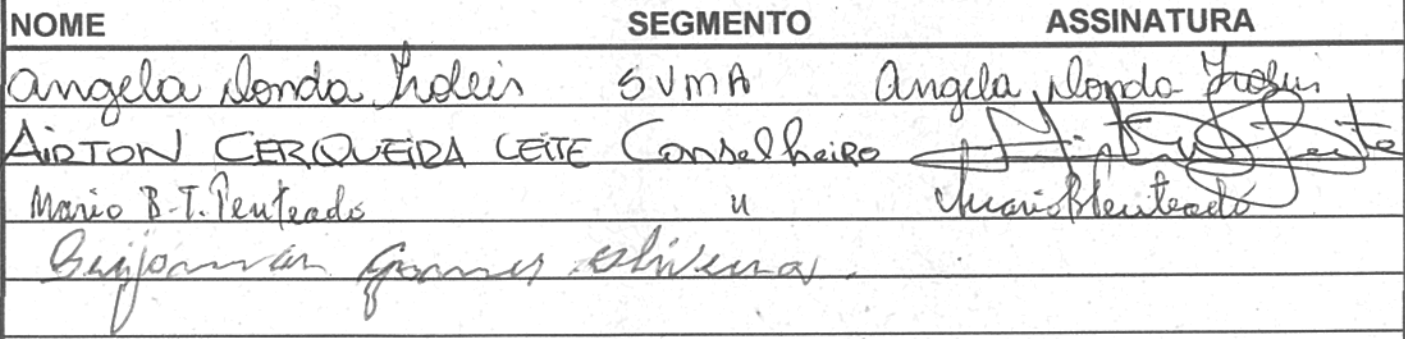 NOME SEGMENTO ASSINATURA
Angela Donda SVMA Angela Donda
AIRTON CERQUEIRA LEITE Conselheiro
Mario B.T. Penteado " Mario B Penteado
Gomes Oliveira.